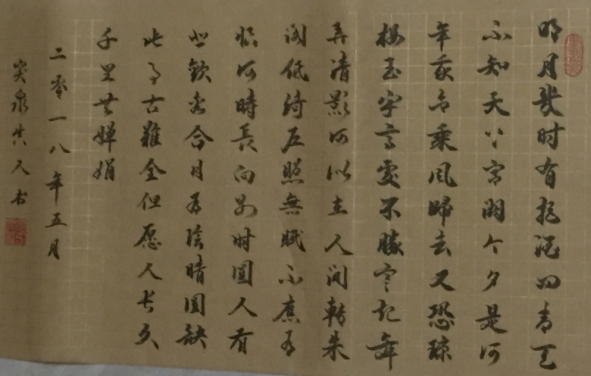 明月幾时有把酒问青天
不知天上宫闕今夕是何
年我欲乘風歸去又恐琼
楼玉宇高處不勝寒起舞
弄清影何似在人间轉朱
阁低绮户照無眠不應有
恨何時長向别时圓人有
悲歡離合月有陰晴圓缺
此事古難全但愿人长久
千里共嬋娟
二零一八年五月
泉 人书